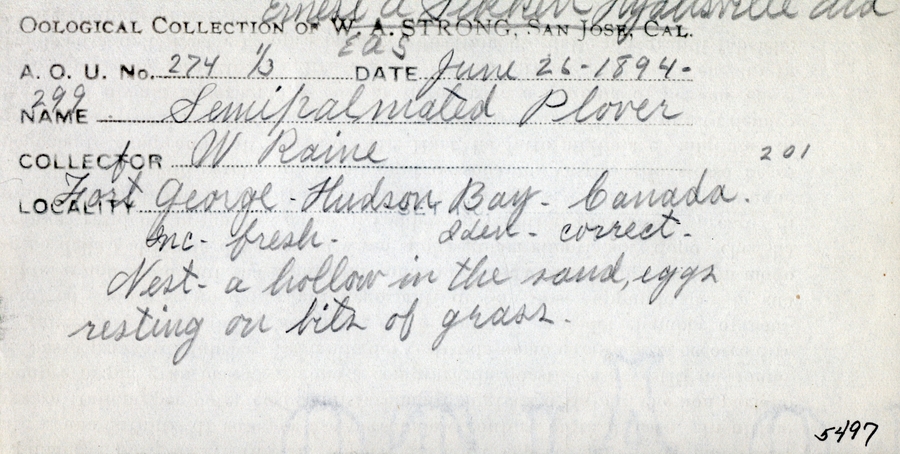 Ernest A
OOLOGICAL COLLECTION OF W. A. STRONG, SAN JOSE, CAL.
EaS
A. O. U. No. 274 1/3 DATE June 26-1894-
299
NAME Semipalmated Plover
COLLECTOR W Raine
201
LOCALITY Fort George - Hudson Bay - Canada.
SET
Inc- fresh. Iden- correct-
Nest- a hollow in the sand, eggs
resting on bits of grass.
5497